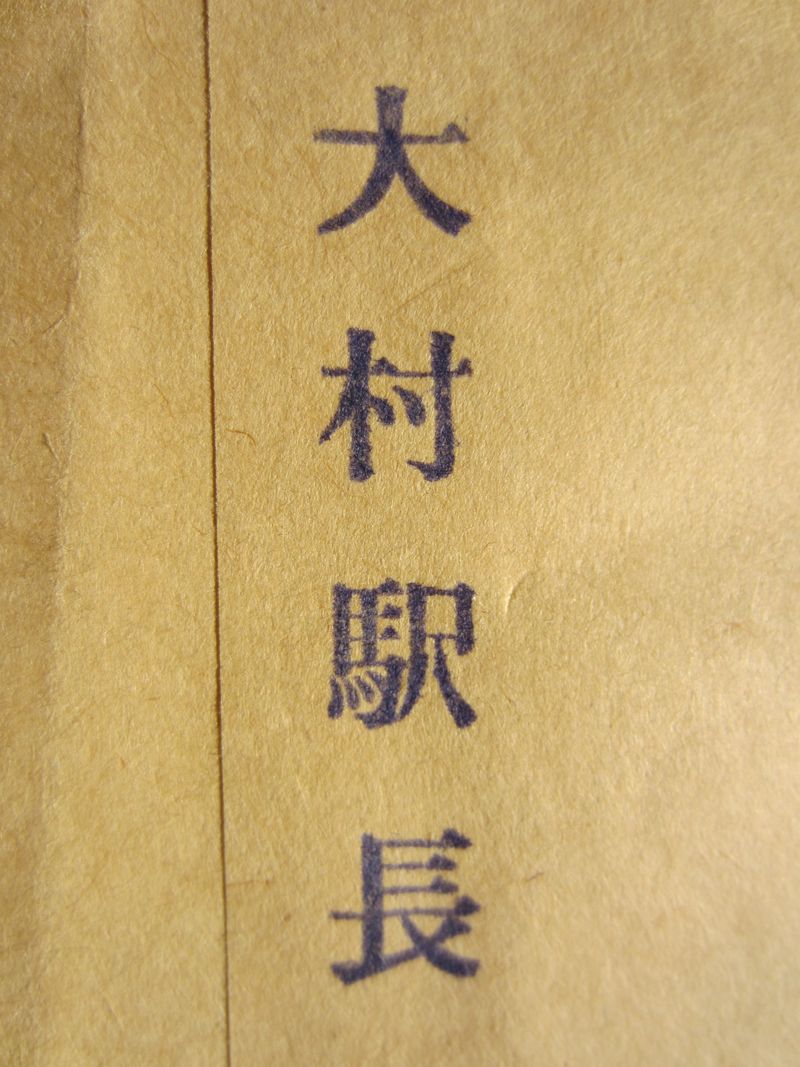 大村駅長